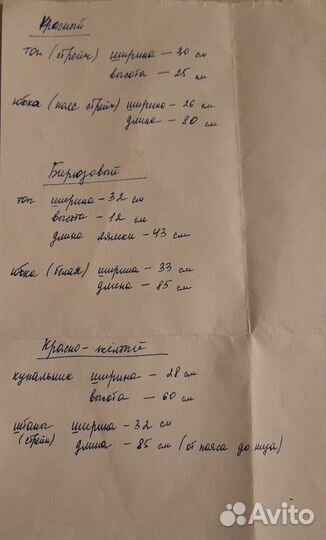 Красный
топ (стрейч) ширина - 30 см
высота - 25 см
юбка (пояс стрейч) ширина - 26 см
длина - 80 см
Бирюзовый
топ ширина - 32 см
высота - 12 см
длина лямки - 43 см
юбка (белая) ширина - 33 см
длина - 85 см
Красно-жёлтый
купальник ширина - 28 см
высота - 60 см
штаны ширина - 32 см
(стрейч) длина - 85 см (от пояса до низа)
Avito